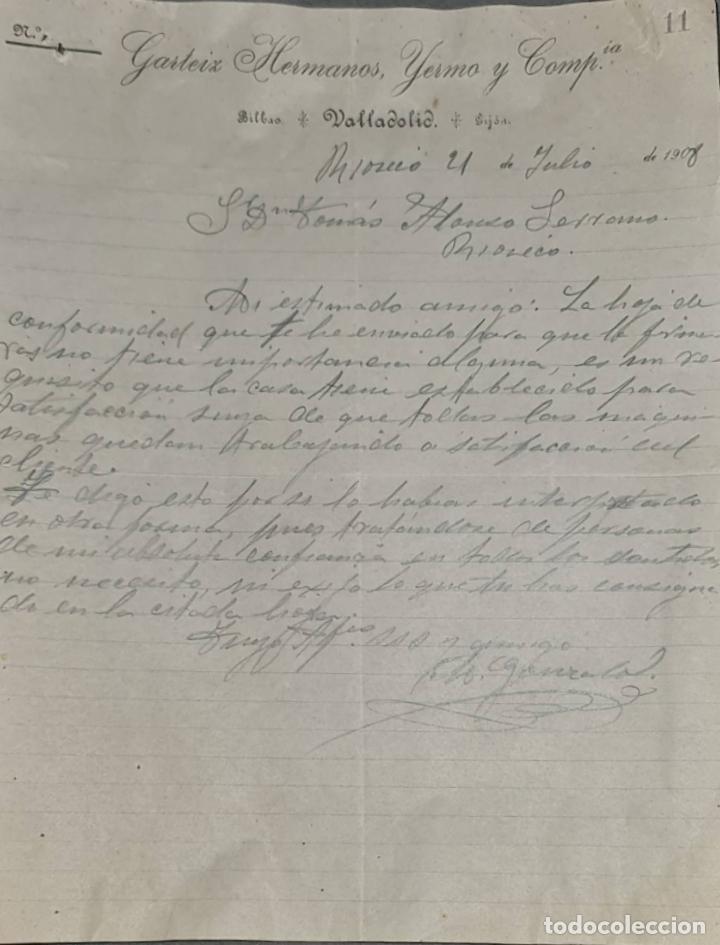 11
N.º
Garteiz Hermanos, Yermo y Comp.ia
Bilbao. * Valladolid. * Gijón.
Rioseco 21 de Julio de 1908
Sr Dn Tomás Alonso Serrano.
Rioseco.
Mi estimado amigo: La hoja de
conformidad que te he enviado para que la firme-
ras no tiene importancia alguna, es un re-
quisito que la casa tiene establecido para
satisfacción suya de que todas las maqui-
nas quedan trabajando a satisfacción del
cliente.
Te digo esto por si lo habias interpretado
en otra forma, pues tratandose de personas
de mi absoluta confianza en todos los
no necesito, ni exijo lo que tu has consigna-
do en la citada hoja.
Tuyo Af.mo SSS y amigo
Gonzalez
todocoleccion
todocoleccion.net